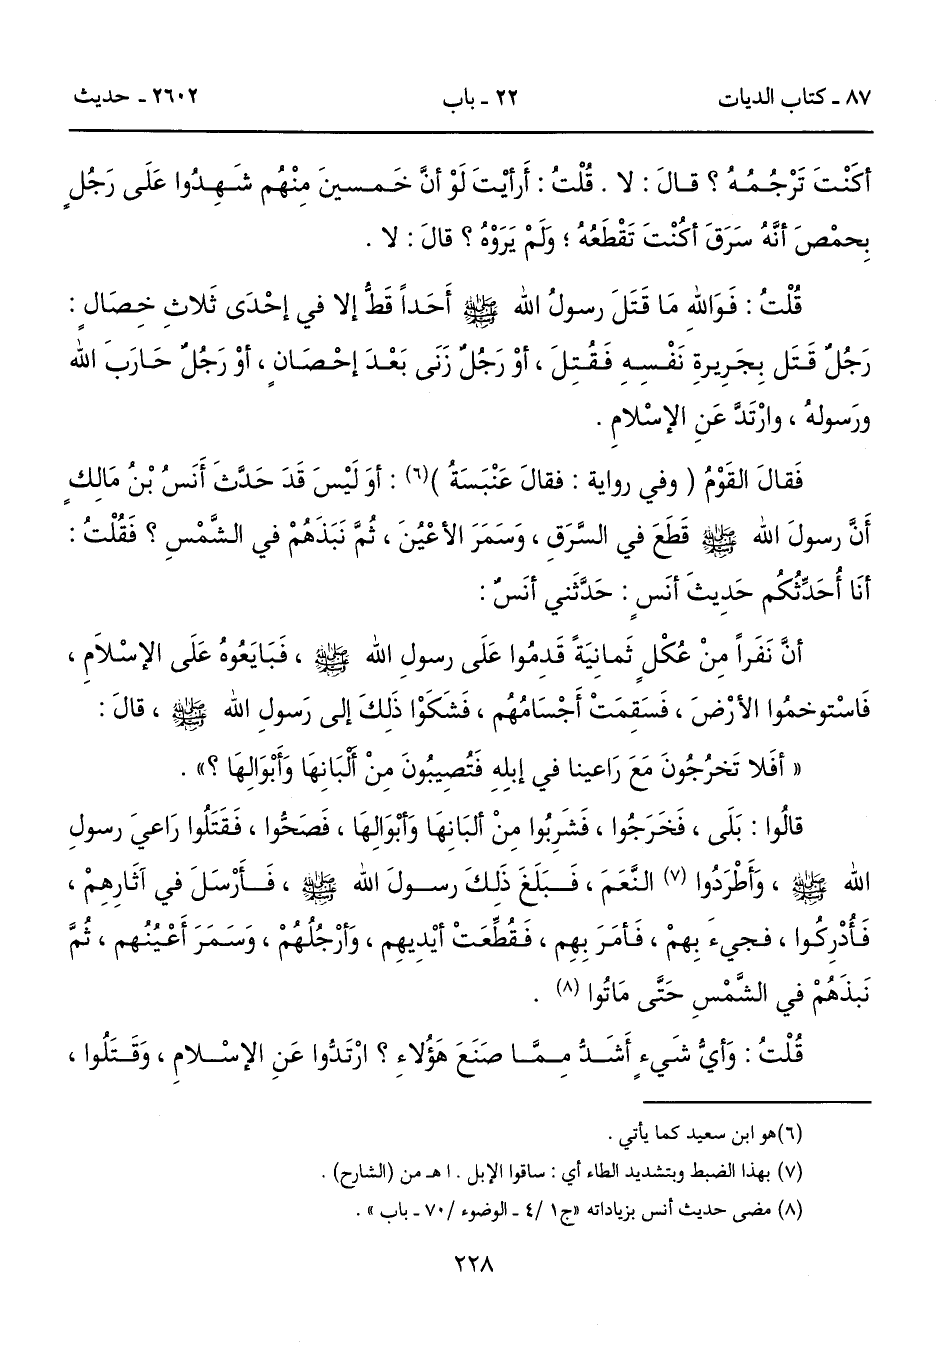 ٨٧ - كتاب الديات ٢٢ - باب ٢٦٠٢ - حديث
أكنْتَ تَرْجُمُهُ ؟ قالَ : لا . قُلْتُ : أَرأيْتَ لَوْ أنَّ خَمسينَ مِنْهُم شَهِدُوا عَلَى رَجُلٍ
بِحمْصَ أنَّهُ سَرَقَ أكُنْتَ تَقْطَعُهُ ؛ ولَمْ يَرَوْهُ ؟ قالَ : لا .
قُلْتُ : فَوَاللهِ مَا قَتَلَ رسولُ الله ﷺ أَحَداً قَطُّ إلا في إحْدَى ثَلاثِ خِصَالٍ :
رَجُلٌ قَتَل بِجَرِيرةِ نَفْسِهِ فَقُتِلَ ، أوْ رَجُلٌ زَنَى بَعْدَ إحْصَانٍ ، أوْ رَجُلٌ حَارَبَ الله
ورَسولهُ ، وارْتَدَّ عَنِ الإسْلامِ .
فَقالَ القَوْمُ ( وفي رواية : فقالَ عَنْبَسَةُ )(٦) : أوَ لَيْسَ قَدَ حَدَّثَ أَنَسُ بْنُ مَالِكٍ
أَنَّ رسولَ الله ﷺ قَطَعَ في السَّرَقِ ، وَسَمَرَ الأعْيُنَ ، ثُمَّ نَبَذَهُمْ في الشَّمْسِ ؟ فَقُلْتُ :
أنا أُحَدِّثُكُم حَدِيثَ أنَسٍ : حَدَّثَني أنَسٌ :
أنَّ نَفَراً مِنْ عُكْلٍ ثَمانِيَةً قَدِمُوا عَلَى رسولِ الله ﷺ ، فَبَايَعُوهُ عَلَى الإسْلامِ ،
فَاسْتوخمُوا الأرْضَ ، فَسَقِمَتْ أَجْسَامُهُم ، فَشَكَوْا ذَلِكَ إلى رَسولِ الله ﷺ ، قالَ :
« أفَلا تَخرُجُونَ مَعَ رَاعينا في إبلِهِ فَتُصِيبُونَ مِنْ أَلْبَانِهَا وَأَبْوَالِهَا ؟» .
قالُوا : بَلَى ، فَخَرَجُوا ، فَشَرِبُوا مِنْ ألبَانِهَا وَأبْوَالِهَا ، فَصَحُّوا ، فَقَتَلُوا رَاعيَ رسولِ
الله ﷺ ، وَأطْرَدُوا (٧) النَّعَمَ ، فَبَلَغَ ذَلِكَ رسولَ الله ﷺ ، فَأرْسَلَ في آثارِهِمْ ،
فَأُدْرِكُوا ، فجيءَ بِهِمْ ، فَأمَرَ بِهِم ، فَقُطِّعَتْ أيْدِيهِم ، وَأرْجُلُهُمْ ، وَسَمَرَ أَعْيُنَهُم ، ثُمَّ
نَبَذَهُمْ في الشَّمْسِ حَتَّى مَاتُوا (٨) .
قُلْتُ : وَأيُّ شَيءٍ أَشَدُّ مِمَّا صَنَعَ هَؤُلاءِ ؟ ارْتَدُّوا عَنِ الإسْلامِ ، وَقَتَلُوا ،
(٦)هو ابن سعيد كما يأتي .
(٧) بهذا الضبط وبتشديد الطاء أي : ساقوا الإبل . ا هـ من (الشارح) .
(٨) مضى حديث أنس بزياداته «ج١ /٤ - الوضوء /٧٠ - باب » .
٢٢٨